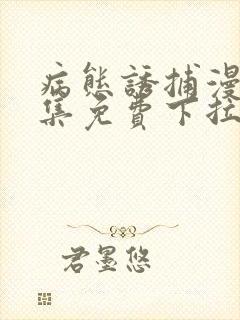 病態誘捕漫
集免費下拉
君墨悠